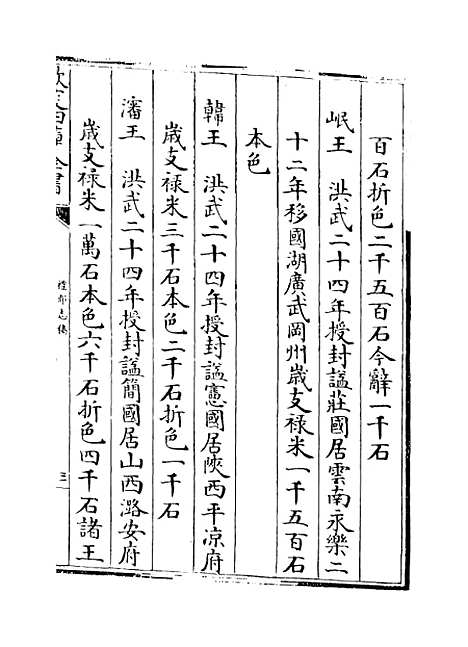 百石折色二千五百石今辭一千石
岷王　洪武二十四年授封諡莊國居雲南永樂二
十二年移國湖廣武岡州歲支禄米一千五百石
本色
韓王　洪武二十四年授封諡憲國居陝西平凉府
歲支禄米三千石本色二千石折色一千石
瀋王　洪武二十四年授封諡簡國居山西潞安府
歲支禄米一萬石本色六千石折色四千石諸王
欽定四庫全書
禮部志稿